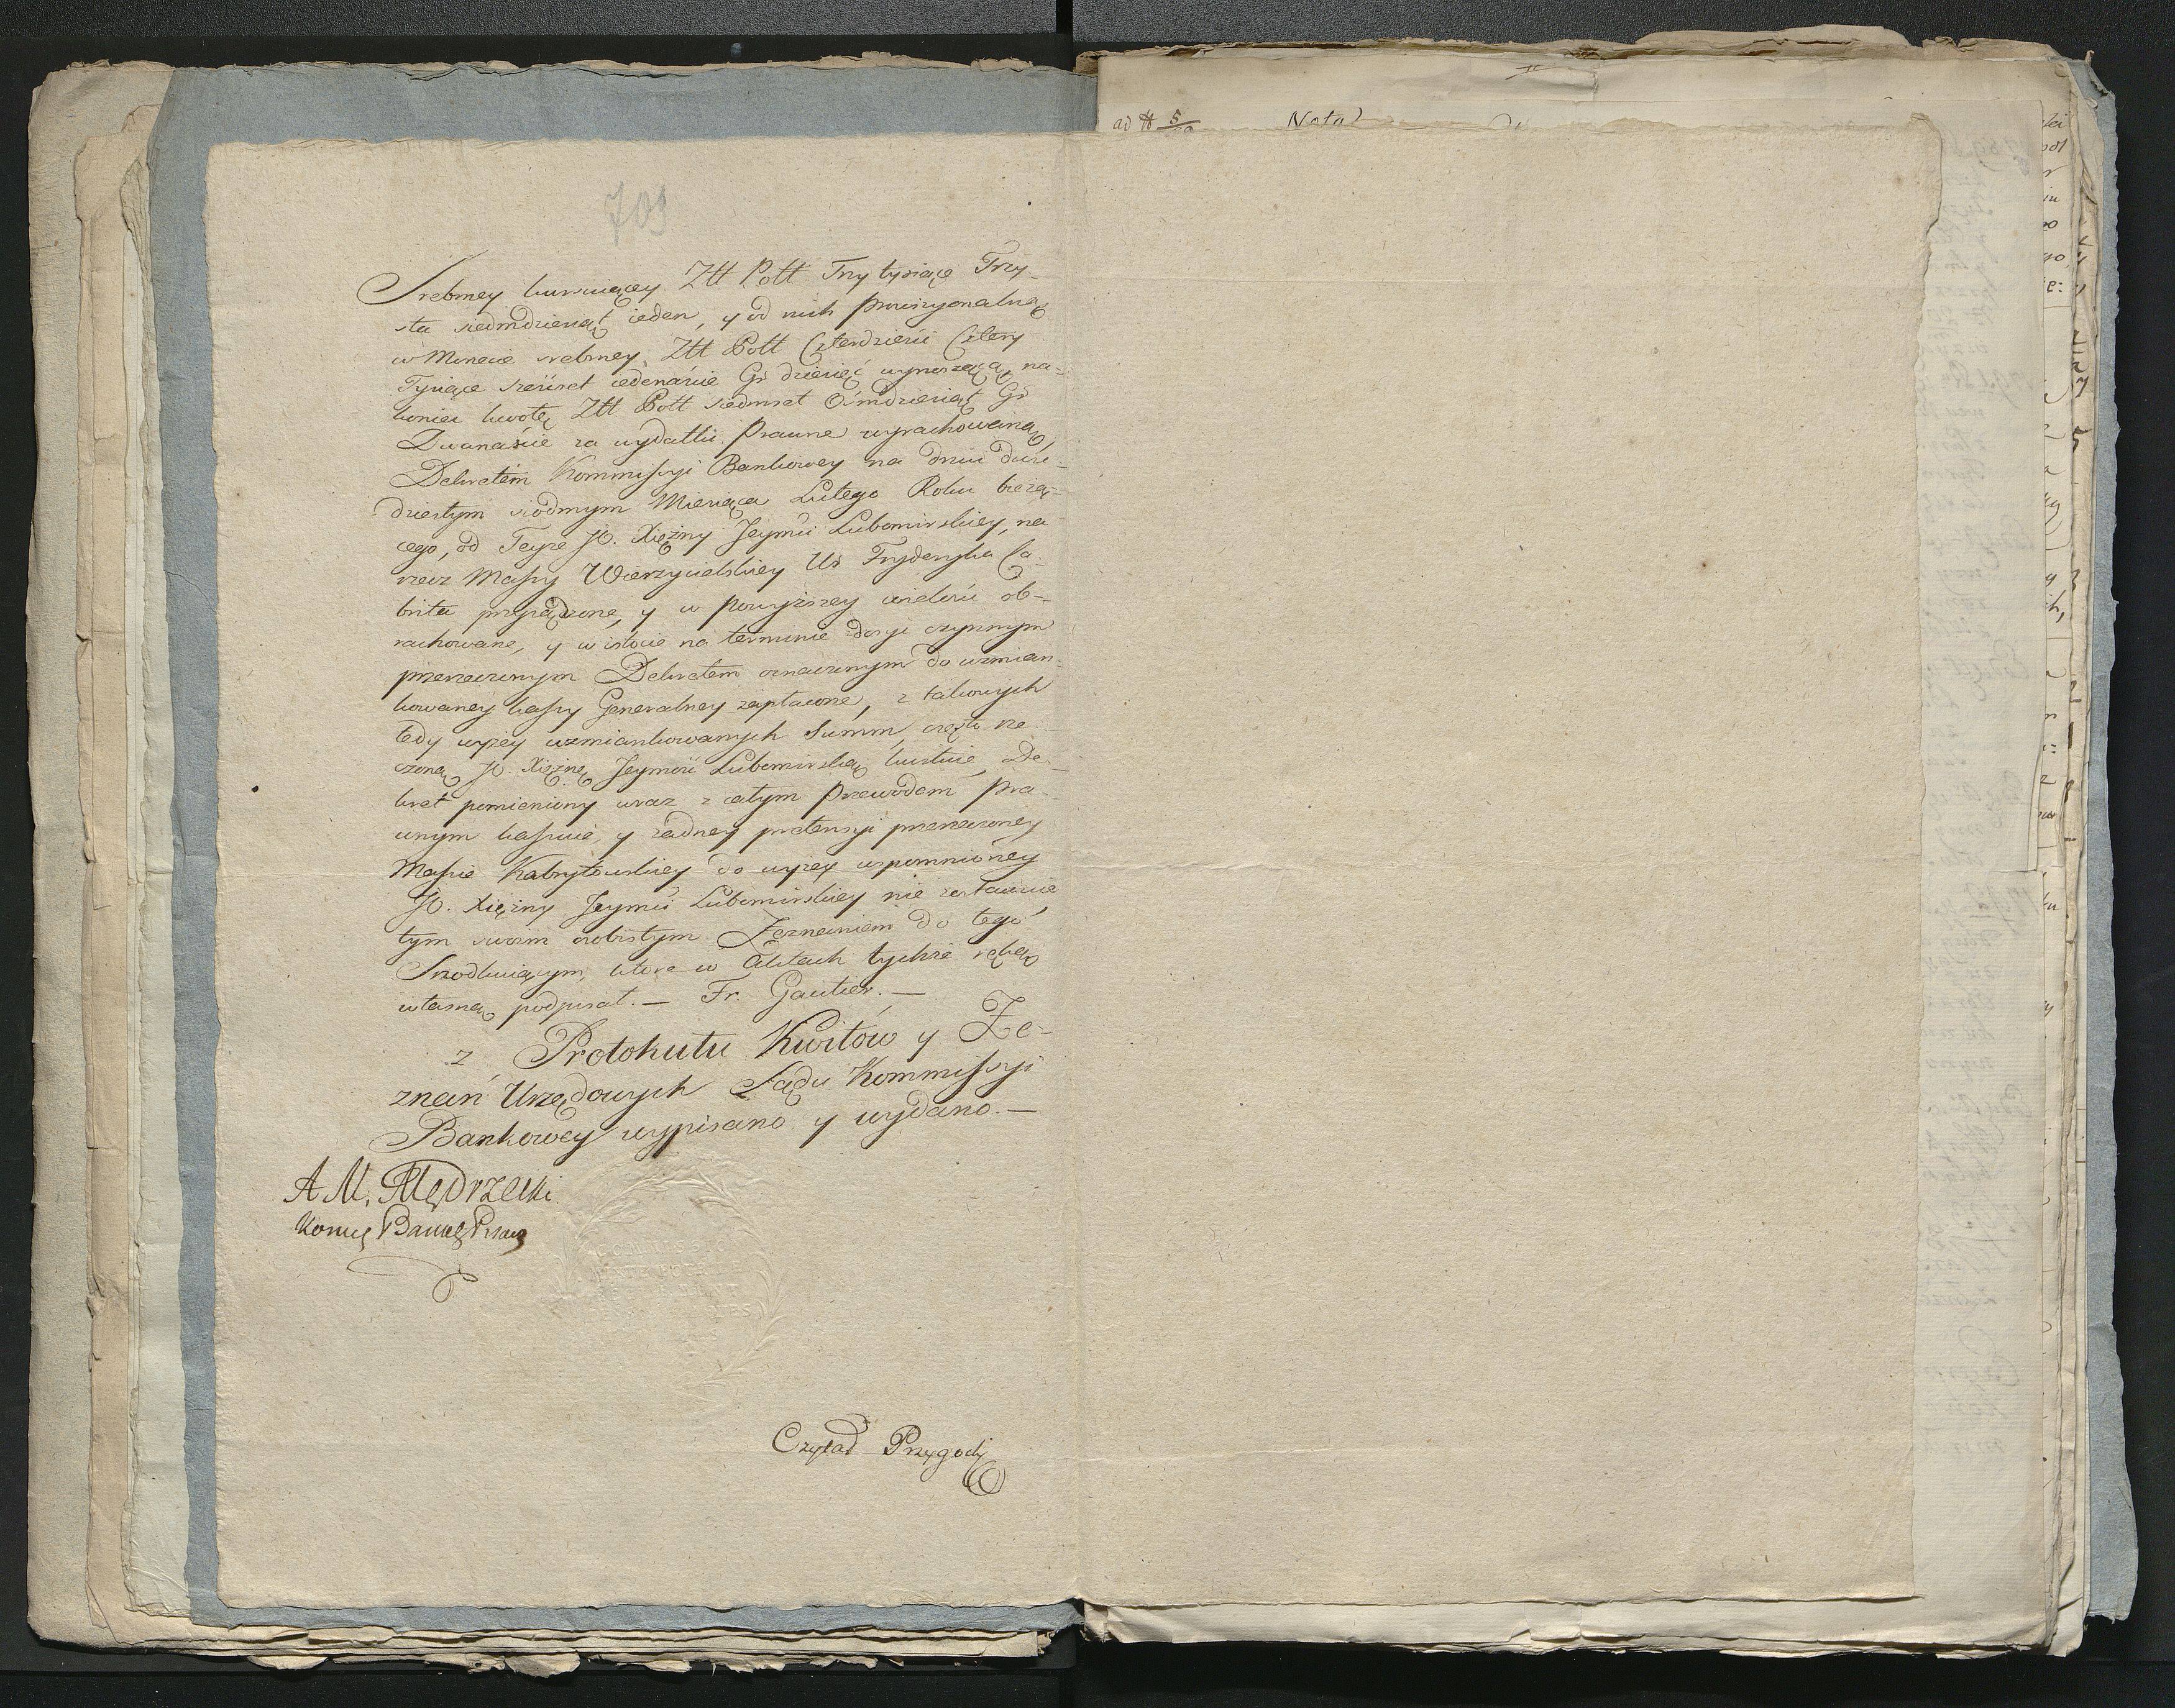 709
Srebrney kursuiącey Ztt Poll Trzy tysiące Trzy-
sta siedmdziesiąt ieden, y od nich prowizyonalną
w Monecie srebrney Ztt Poll Czterdzieści Cztery
Tysiące sześćset iedenaście Gr dziesięć wynoszącą, na-
koniec kwotę Ztt Poll siedmset Ośmdziesiąt Gr
Dwanaście za wydatki Prawne wyrachowaną,
Dekretem Kommissyi Bankowey na dniu dwu-
dziestym siodmym Miesiąca Lutego Roku bieżą-
cego, od Teyże JO. Xiężny Jeymci Lubomirskiey, na
rzecz Massy Wierzycielskiey Ur Fryderyka Ca-
brita przysądzone, y w powyższey wielości ob-
rachowane, y w istocie na terminie dosyć czynnym
przerzeczonym Dekretem oznaczonym do wzmian-
kowaney kassy Generalney zapłacone, z takowych
tedy wyżey wzmiankowanych Summ, często rze-
czoną JO. Xiężnę Jeymość Lubomirską kwituie, De-
kret pomieniony wraz z całym Przewodem Pra-
wnym kassuie, y żadney pretensyi przerzeczoney
Massie Kabrytowskiey do wyżey wspomnioney
JO. Xiężny Jeymci Lubomirskiey nie zostawuie,
tym swoim osobistym Zeznaniem do tego
Srzodkuiącym, które w Aktach tychże ręką
własną podpisał. — Fr. Gautier. —
z Protokułu Kwitów y Ze-
znań Urzędowych Sądu Kommissyi
Bankowey wypisano y wydano. —
A M. Mędrzecki
Czytał Przygodz
ad № 5
Nota